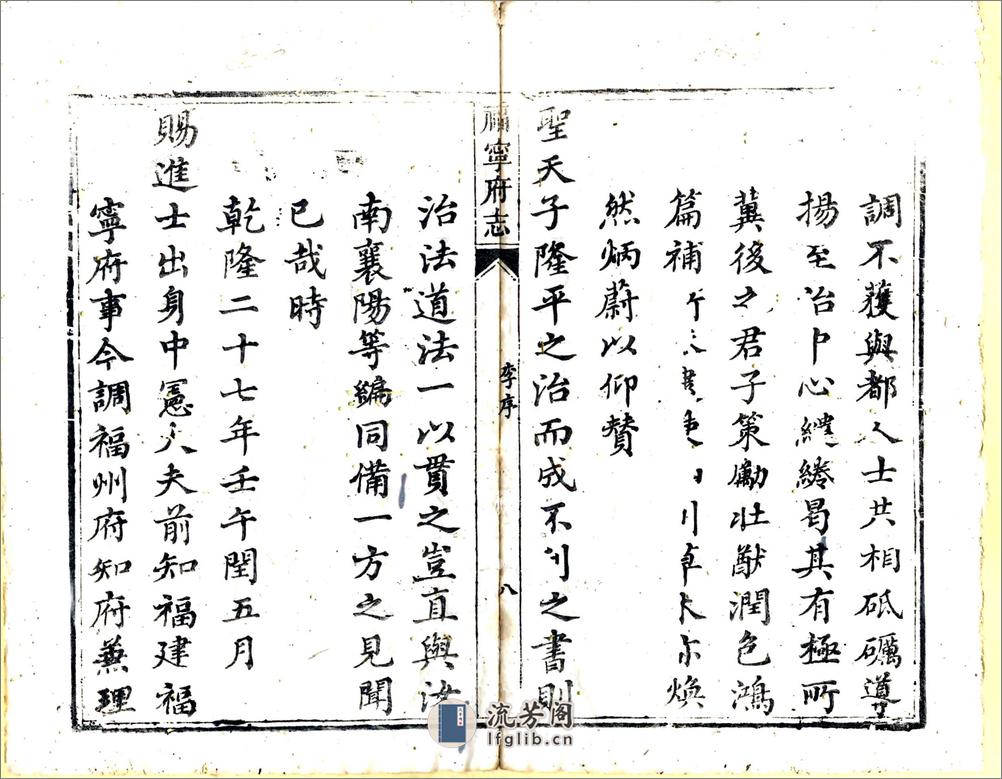 調不獲與都人士共相砥礪導
揚至治中心繾綣曷其有極所
冀後之君子策勵壯猷潤色鴻
篇補
然炳蔚以仰贊
聖天子隆平之治而成不刊之書則
福寧府志
李序
八
治法道法一以貫之豈直與汝
南襄陽等編同備一方之見聞
已哉時
乾隆二十七年壬午閏五月
賜進士出身中憲大夫前知福建福
寧府事今調福州府知府兼理
流芳閣
lfglib.cn